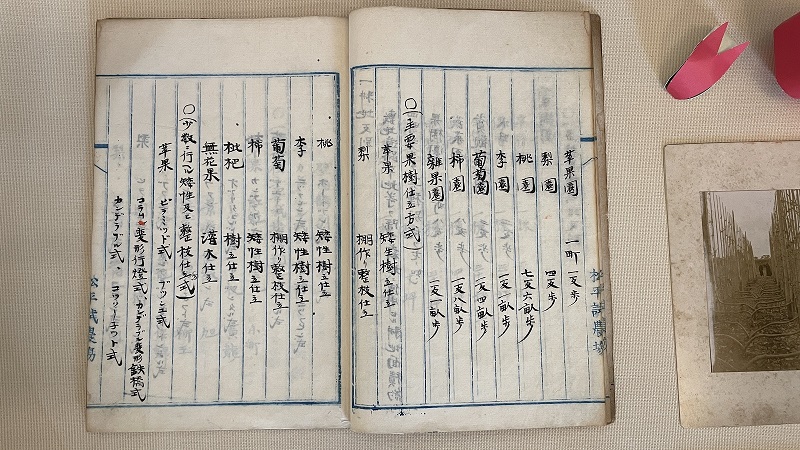 苹果園 一町一反歩
梨園 四反歩
桃園 七反六畝歩
李園 一反一畝歩
葡萄園 一反四畝歩
柿園 一反八畝歩
雑果園 一反一畝歩
○(主要果樹仕立方式)
苹果 矮生樹仕立
梨 棚作り整枝仕立
松平試農場
桃 矮性樹仕立
李 矮性樹仕立
葡萄 棚作り整枝仕立
柿 矮性樹仕立
枇杷 樹仕立
無花果 灌木仕立
○(少数ニ行フ矮性及ビ整枝仕立式)
苹果 ピラミッド式、ブッシュ式
コラム変形行燈式、カンデラブル変形鉄橋式
カンデラブル式、
松平試農場